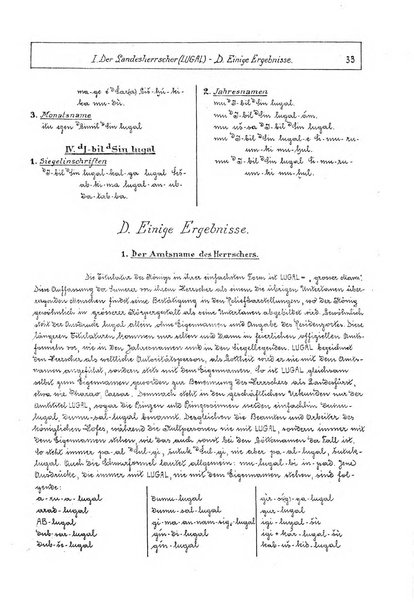 I. Der Landesherrscher (LUGAL) - D. Einige Ergebnisse. 33
3. Monatsname
lugal
IV. ᵈI-bil ᵈSin lugal
1. Siegelinschriften
ᵈI-bil ᵈSin lugal kal-ga lugal
ab-ki-ma lugal an-ub-
da-tab-ba.
2. Jahresnamen
mu ᵈI-bil ᵈSin lugal.
mu ᵈI-bil ᵈSin lugal-ám.
mu ús-sa ᵈI-bil ᵈSin lugal.
mu ᵈI-bil ᵈSin lugal-e si-mu-ru-
um-ki mu-hul.
mu ᵈI-bil ᵈSin lugal si-mu-ru-
um-ki mu-hul.
D. Einige Ergebnisse.
1. Der Amtsname des Herrschers.
Die Titulatur des Königs in ihrer einfachsten Form ist LUGAL = „grosser Mann".
Diese Auffassung der Sumerer von ihrem Herrscher als einem die übrigen Untertanen über-
ragenden Menschen findet seine Bestätigung in den Reliefdarstellungen, wo der König
gewöhnlich in grösserer Körpergestalt als seine Untertanen abgebildet wird. Gewöhnlich
steht der Ausdruck lugal allein ohne Eigennamen und Angabe des Residenzortes. Die
längeren Titulaturen kommen nur selten und dann in feierlichen offiziellen Amts-
formeln vor, wie in den Jahresnamen und in den Siegellegenden. LUGAL bezeichnet
den Herrscher als weltliche Autoritätsperson, als Gottheit wird er nie mit dem Amts-
namen angeführt, sondern stets mit dem Eigennamen. So ist LUGAL gleichsam
selbst zum Eigennamen geworden zur Benennung des Herrschers als Landesfürst,
etwa wie Pharao, Caesar. Demnach steht in den geschäftlichen Urkunden nur der
Amtstitel LUGAL, sogar die Prinzen und Prinzessinnen werden einfachhin dumu-
lugal, dumu-sal-lugal benannt. Desgleichen die Beamten und Arbeiter des
königlichen Hofes, während die Kultpersonen nie mit LUGAL, sondern immer mit
dem Eigennamen stehen, wie das auch sonst bei den Götternamen der Fall ist.
So steht immer pa-al ᵈDul-gi, ᵈDul-gi, nie aber pa-al-lugal,
lugal. Auch die Schwurformel lautet allgemein: mu-lugal-bi in-pad. Jene
Ausdrücke, die immer mit LUGAL, nie mit dem Eigennamen stehen, sind fol-
gende:
a-ru-a-lugal
arad-lugal
AB-lugal
dub-sar-lugal
lugal
Dumu-lugal
Dumu-sal-lugal
gi-ma-an-nam-sig-lugal
gin-di-lugal
gin-lugal
lugal
igi-lugal
lugal
lugal